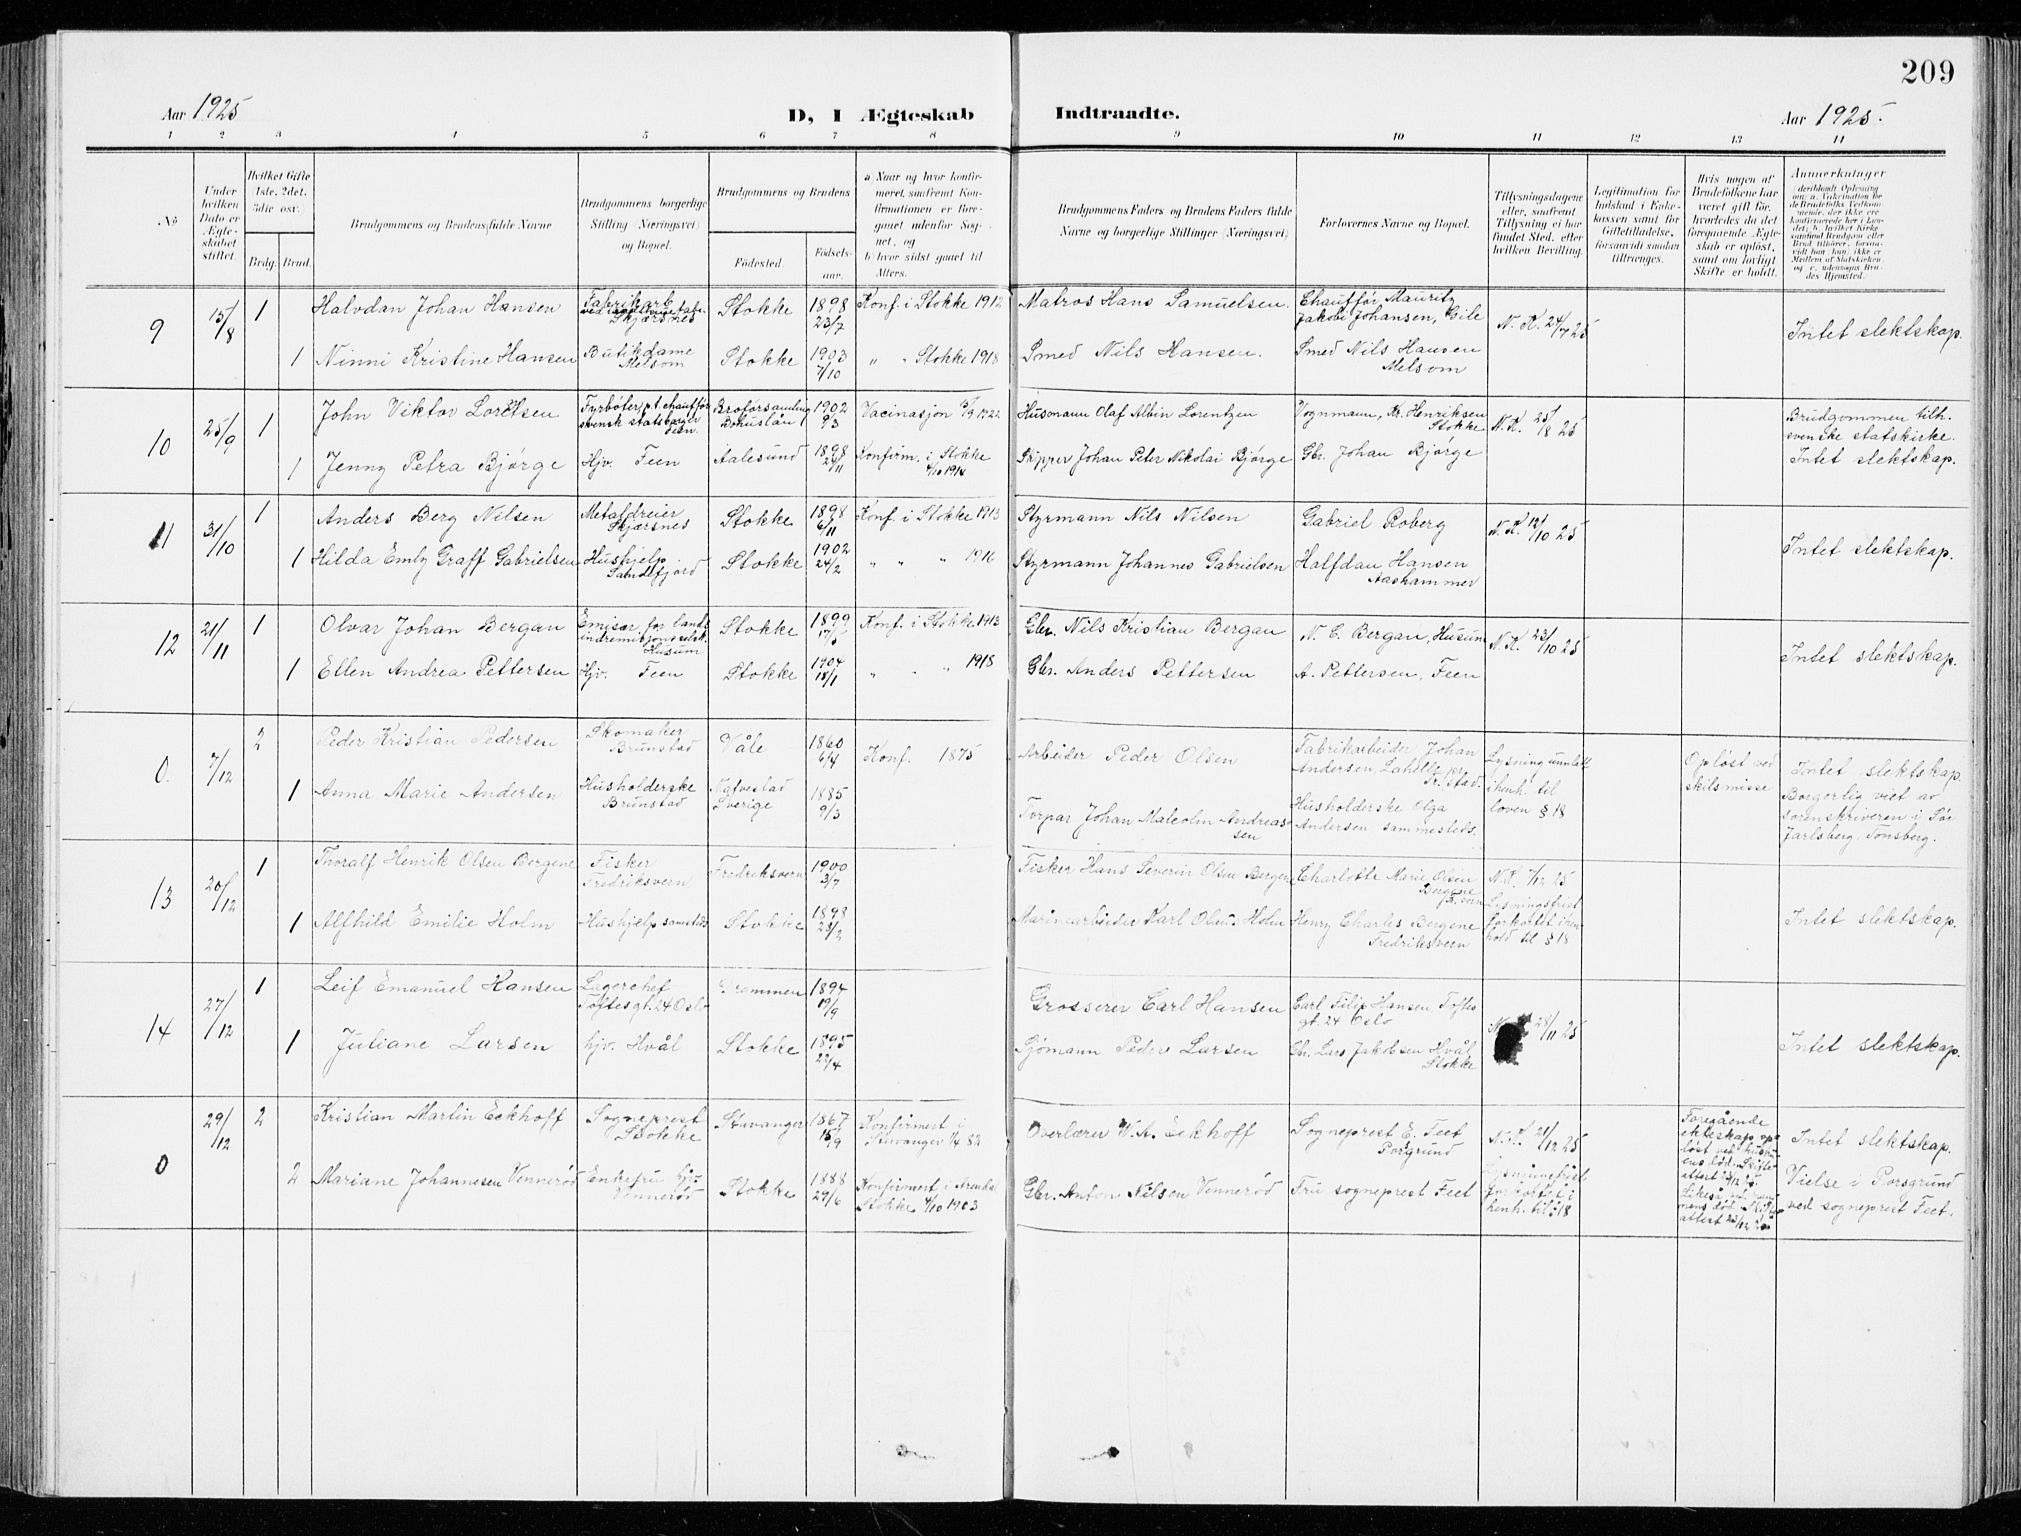 209
Aar 1925
D, I Ægteskab Indtraadte.
Aar 1925.
1 2 3 4 5 6 7 8 9 10 11 12 13 14
No
Under hvilken Dato er Ægteskabet stiftet.
Hvilket Gifte (1ste, 2det, 3die osv.)
Brdg. Brud.
Brudgommens og Brudens fulde Navne
Brudgommens borgerlige Stilling (Næringsvei) og Bopæl.
Brudgommens og Brudens
Födested. Födselsaar.
a) Naar og hvor konfirmeret, saafremt Konfirmationen er foregaaet udenfor Sognet, og
b) hvor sidst gaaet til Alters.
Brudgommens Faders og Brudens Faders fulde Navne og borgerlige Stillinger (Næringsvei)
Forlovernes Navne og Bopæl.
Tillysningsdagene eller, saafremt Tillysning ei har fundet Sted, efter hvilken Bevilling.
Legitimation for Indskud i Enkekassen samt for Giftetilladelse, forsaavidt saadan tiltrænges.
Hvis nogen af Brudefolkene har været gift för, hvorledes da det foregaaende Ægteskab er oplöst, samt om lovligt Skifte er holdt.
Anmerkninger
9 15/8 1 Halvdan Johan Hansen Fabrikarb. Skjærsnes Stokke 1898 23/7 Konf. i Stokke 1912 Matros Hans Samuelsen. Chauffør Mauritz Jakobi Johansen, Gile N. K. 24/7 25 Intet slektskap.
1 Ninni Kristine Hansen Butikdame Melsom Stokke 1903 7/10 " " Stokke 1918 Smed Nils Hansen. Smed Nils Hansen Melsom
10 25/9 1 John Viktor Lorentsen Fyrbøter, p.t. chauffør svensk statsborger Feen. Broforsamling Bohuslän 1902 9/3 Vacinasjon 1922 Husmann Olaf Albin Lorentzen Vognmann, Kr. Henriksen Stokke N. K. 25/8 25 Brudgommen tilh. svenske statskirke. Intet slektskap.
1 Jenny Petra Bjørge Hjv. Feen Aalesund 1898 24/11 Konfirm. i Stokke 4/10 1914 Skipper Johan Peter Nikolai Bjørge Gbr. Johan Bjørge
11 31/10 1 Anders Berg Nilsen Metaldreier Skjærsnes Stokke 1898 6/11 Konf. i Stokke 1913 Styrmann Nils Nilsen Gabriel Roberg N. K. 12/10 25 Intet slektskap.
1 Hilda Emly Graff Gabrielsen Hushjelp Sandefjord Stokke 1902 24/2 " " " 1916 Styrmann Johannes Gabrielsen Halfdan Hansen Aashammer
12 21/11 1 Olvar Johan Bergan Emisær for lands indremisjonsselsk. Husum Stokke 1899 17/5 Konf. i Stokke 1913 Gbr. Nils Kristian Bergan N. C. Bergan, Husum N. K. 23/10 25 Intet slektskap.
1 Ellen Andrea Pettersen Hjv. Feen Stokke 1904 18/1 " " " 1918 Gbr. Anders Pettersen A. Pettersen, Feen
0. 7/12 2 Peder Kristian Pedersen Skomaker Brunstad Våle 1860 6/4 Konf. 1875 Arbeider Peder Olsen Fabrikarbeider Johan Andersen, Lahelle pr. Fr.stad. Lysning unnlatt i henh. til loven § 18 Opløst ved skilsmisse Intet slektskap. Borgerlig viet av sorenskriveren i Sør Jarlsberg, Tønsberg.
1 Anna Marie Andersen Husholderske Brunstad Näfvestad Sverige 1885 9/3 Torpar Johan Malcolm Andreassen Husholderske Olga Andersen sammesteds.
13 20/12 1 Thoralf Henrik Olsen Bergene Fisker Fredriksvern Fredriksvern 1900 3/7 Fisker Hans Severin Olsen Bergene Charlotte Marie Olsen Bergene N. K. 7/12 25 Lysningsfrist forkortet i henhold til § 18 Intet slektskap.
1 Alfhild Emilie Holm Hushjelp samsteds Stokke 1898 23/2 Marinearbeider Karl Olaus Holm Henry Charles Bergene Fredriksvern
14 27/12 1 Leif Emanuel Hansen Lagerchef Toftesgt. 24 Oslo Drammen 1894 19/9 Grosserer Carl Hansen Carl Filip Hansen Toftes gt. 24 Oslo 28/11 25 Intet slektskap.
1 Juliane Larsen hjv. Hvål Stokke 1895 22/4 Sjømann Peder Larsen Gbr. Lars Jakobsen Hvål Stokke
0 29/12 2 Kristian Martin Eckhoff Sogneprest Stokke Stavanger 1867 15/9 Konfirmert i Stavanger 82 Overlærer W. A. Eckhoff Sogneprest E. Feet Porsgrund N. K. 21/12 25 Lysningsfrist forkortet i henh. til § 18 Foregående ekteskap opløst ved hustruens død. Skifteattest Intet slektskap. Vielse i Porsgrund ved sogneprest Feet.
2 Mariane Johannesen Vennerød Enkefru hjv. Vennerød Stokke 1888 29/6 Konfirmert i Arendal Stokke 4/10 1903 Gbr. Anton Nilsen Vennerød Fru sogneprest Feet